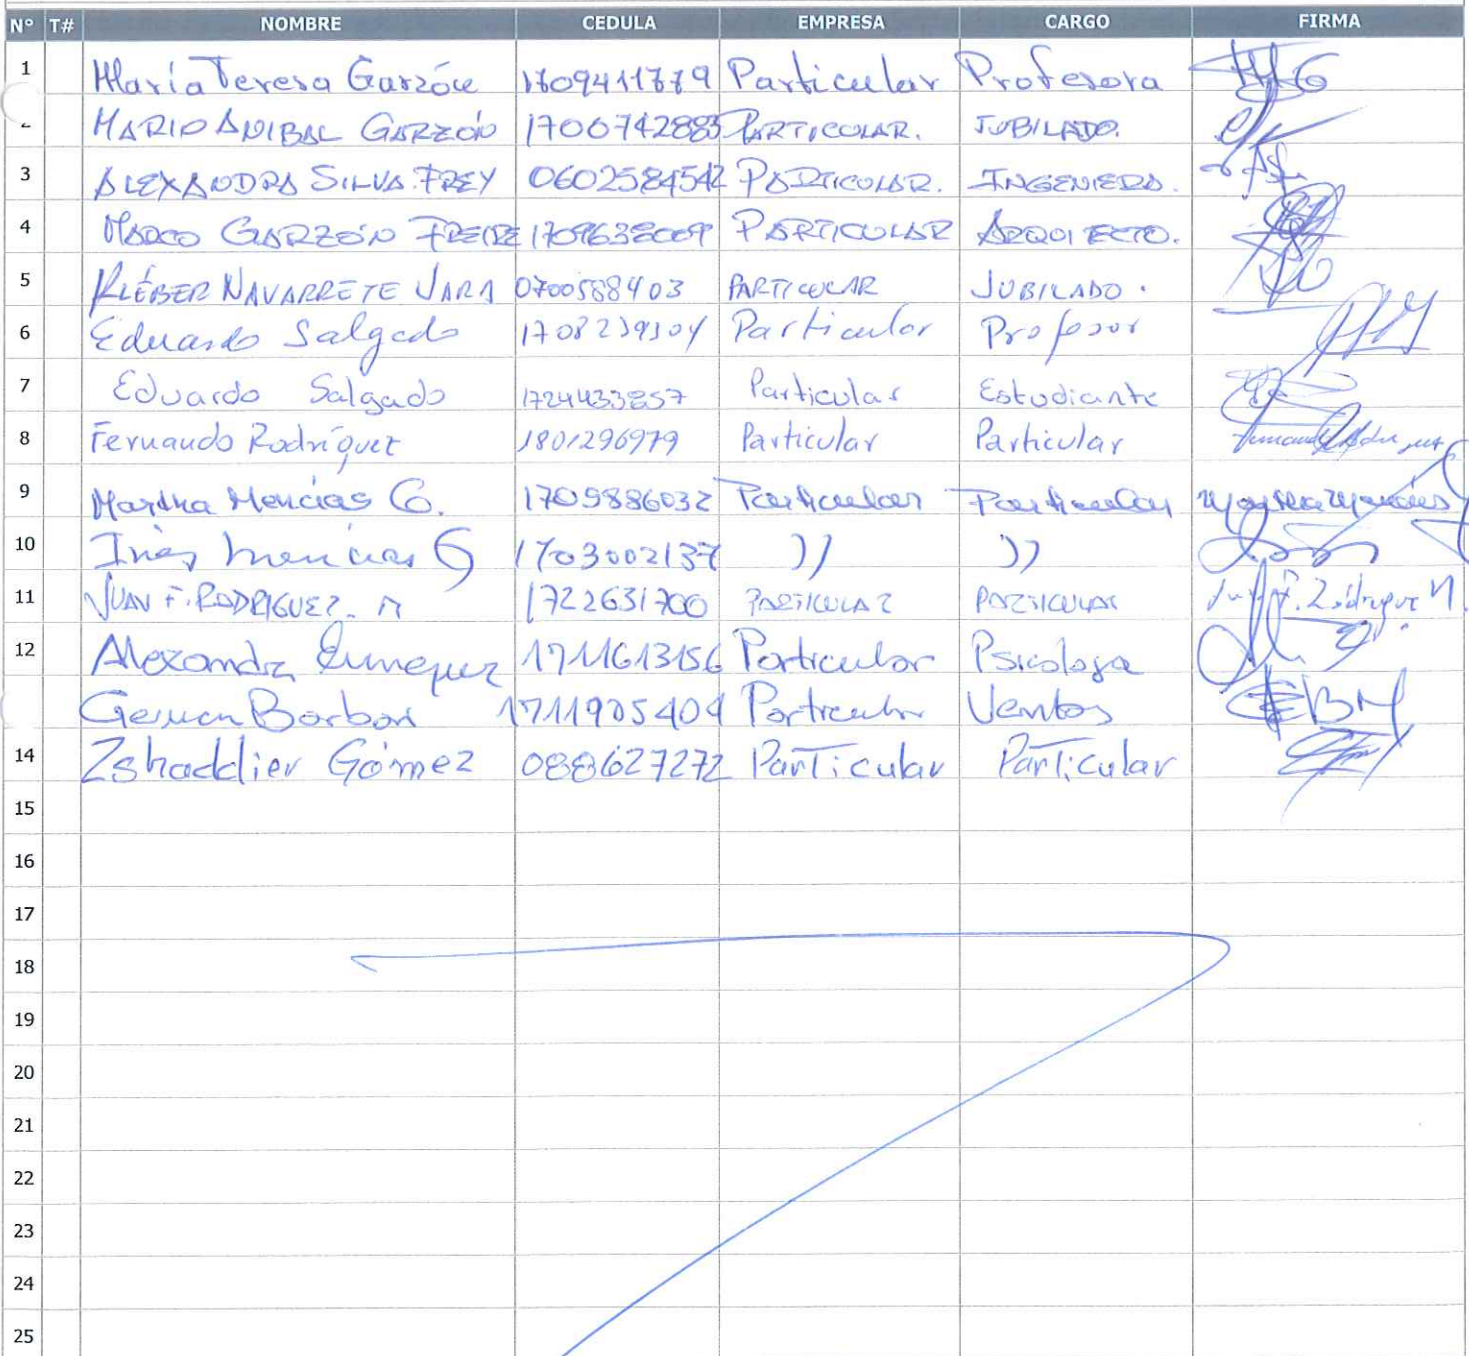 N° T# NOMBRE CEDULA EMPRESA CARGO FIRMA
1 María Teresa Garzón Particular Profesora
MARIO ANIBAL GARZÓN 1706742883 PARTICULAR. JUBILADO.
3 ALEXANDRA SILVA FREY 0602584542 PARTICULAR. INGENIERA.
4 MARCO GARZÓN FREIRE 1709638009 PARTICULAR ARQUITECTO.
5 KLÉBER NAVARRETE JARA 0700588403 PARTICULAR JUBILADO.
6 Eduardo Salgado Particular Profesor
7 Eduardo Salgado 1724433857 Particular Estudiante
8 Fernando Rodríguez 1801296979 Particular Particular
9 Martha Mencías G. 1705886032 Particular Particular Martha Mencías
10 Inés Mencías G 1703002137 )) ))
11 JUAN F. RODRIGUEZ. M 1722631700 PARTICULAR PARTICULAR
12 Alexandra 1711613156 Particular Psicologa
German Borbor 1711905404 Particular Ventas
14 Zshaddier Gómez 088627272 Particular Particular
15
16
17
18
19
20
21
22
23
24
25